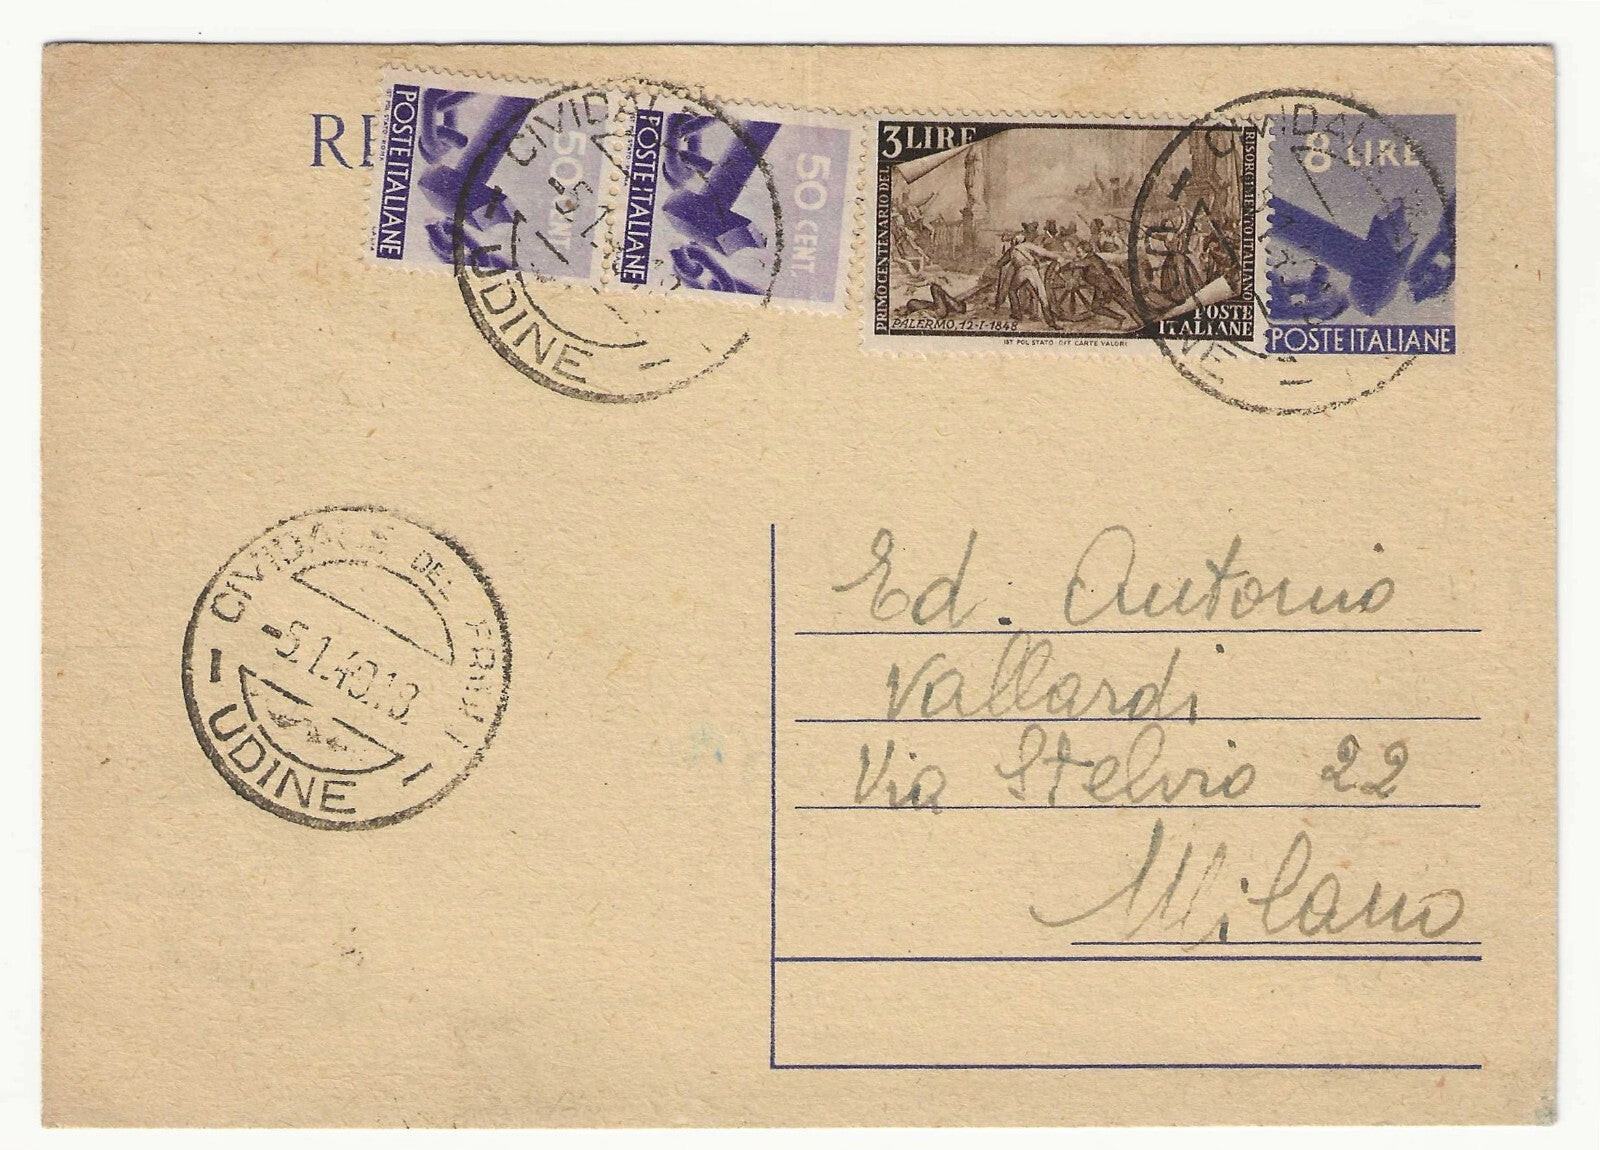 RE
POSTE ITALIANE
50 CENT.
POSTE ITALIANE
50 CENT.
3 LIRE
PRIMO CENTENARIO DEL
RISORGIMENTO ITALIANO
PALERMO, 12-I-1848
POSTE
ITALIANE
IST. POL. STATO OFF. CARTE VALORI
8 LIRE
POSTE ITALIANE
CIVIDALE
UDINE
CIVIDALE
CIVIDALE DEL FRIULI
-5.1.49.18
UDINE
Ed. Antonio
Vallardi
Via Stelvio 22
Milano